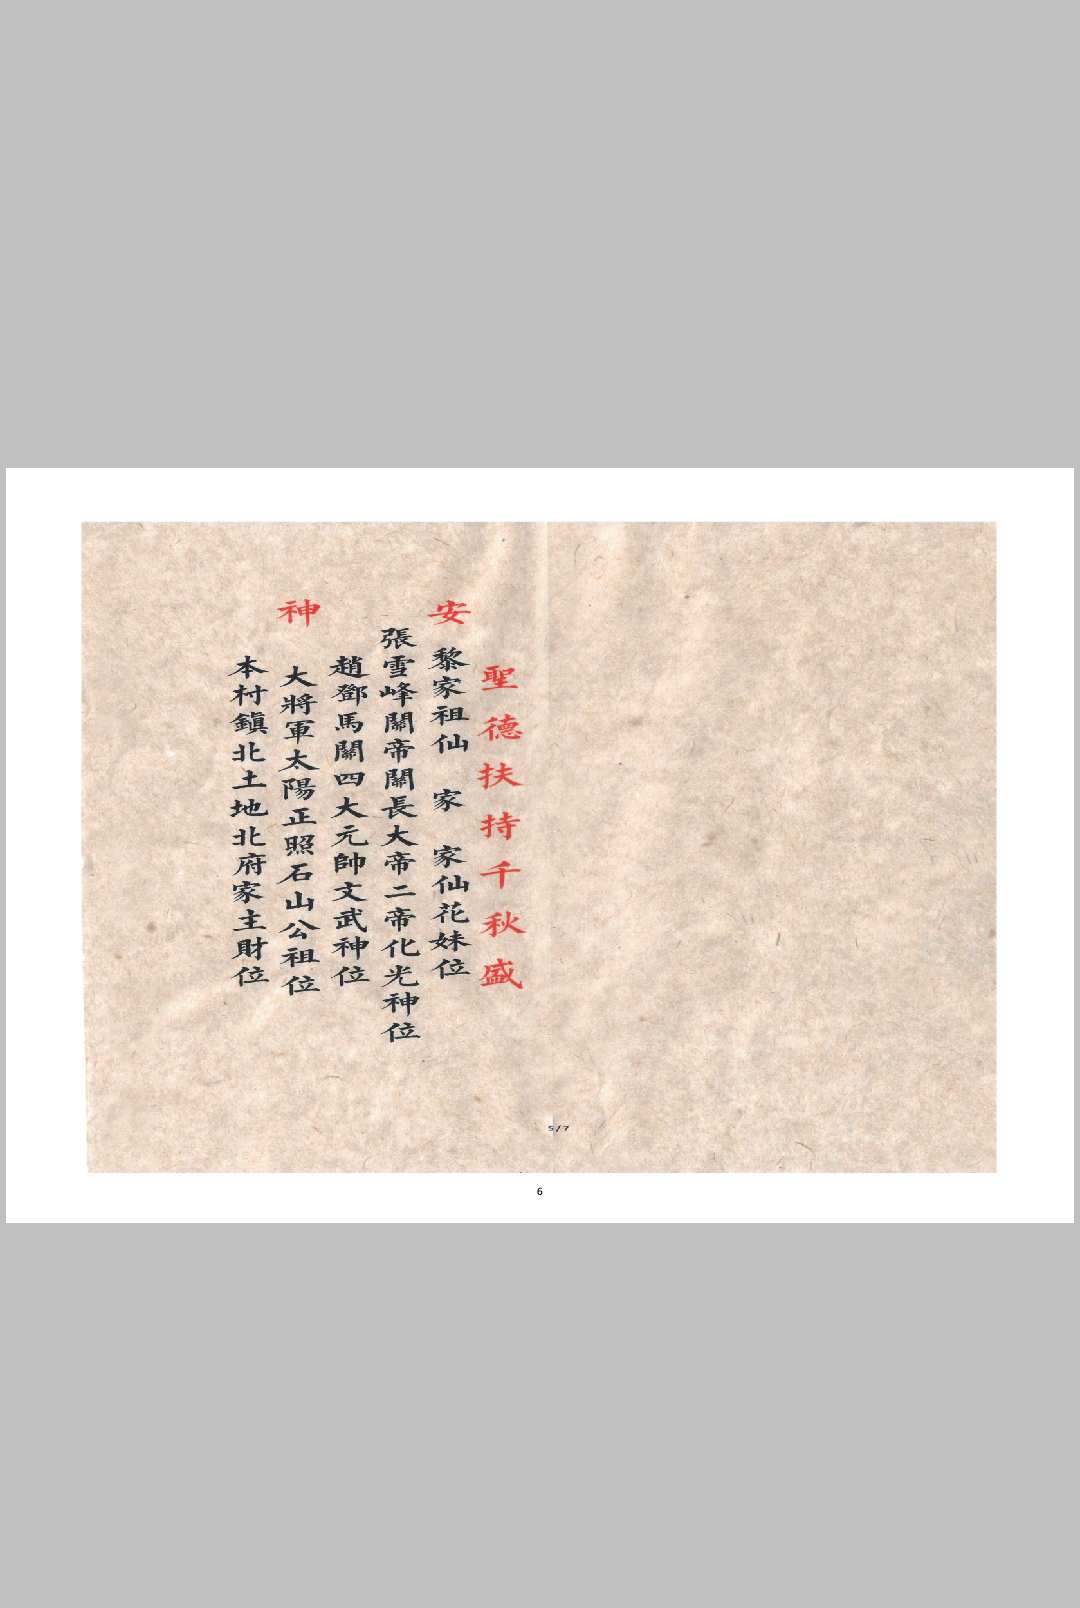 聖德扶持千秋盛
安
黎家祖仙 家 家仙花妹位
張雪峰關帝關長大帝二帝化光神位
趙鄧馬關四大元帥文武神位
神
大將軍太陽正照石山公祖位
本村鎮北土地北府家主財位
5/7
6